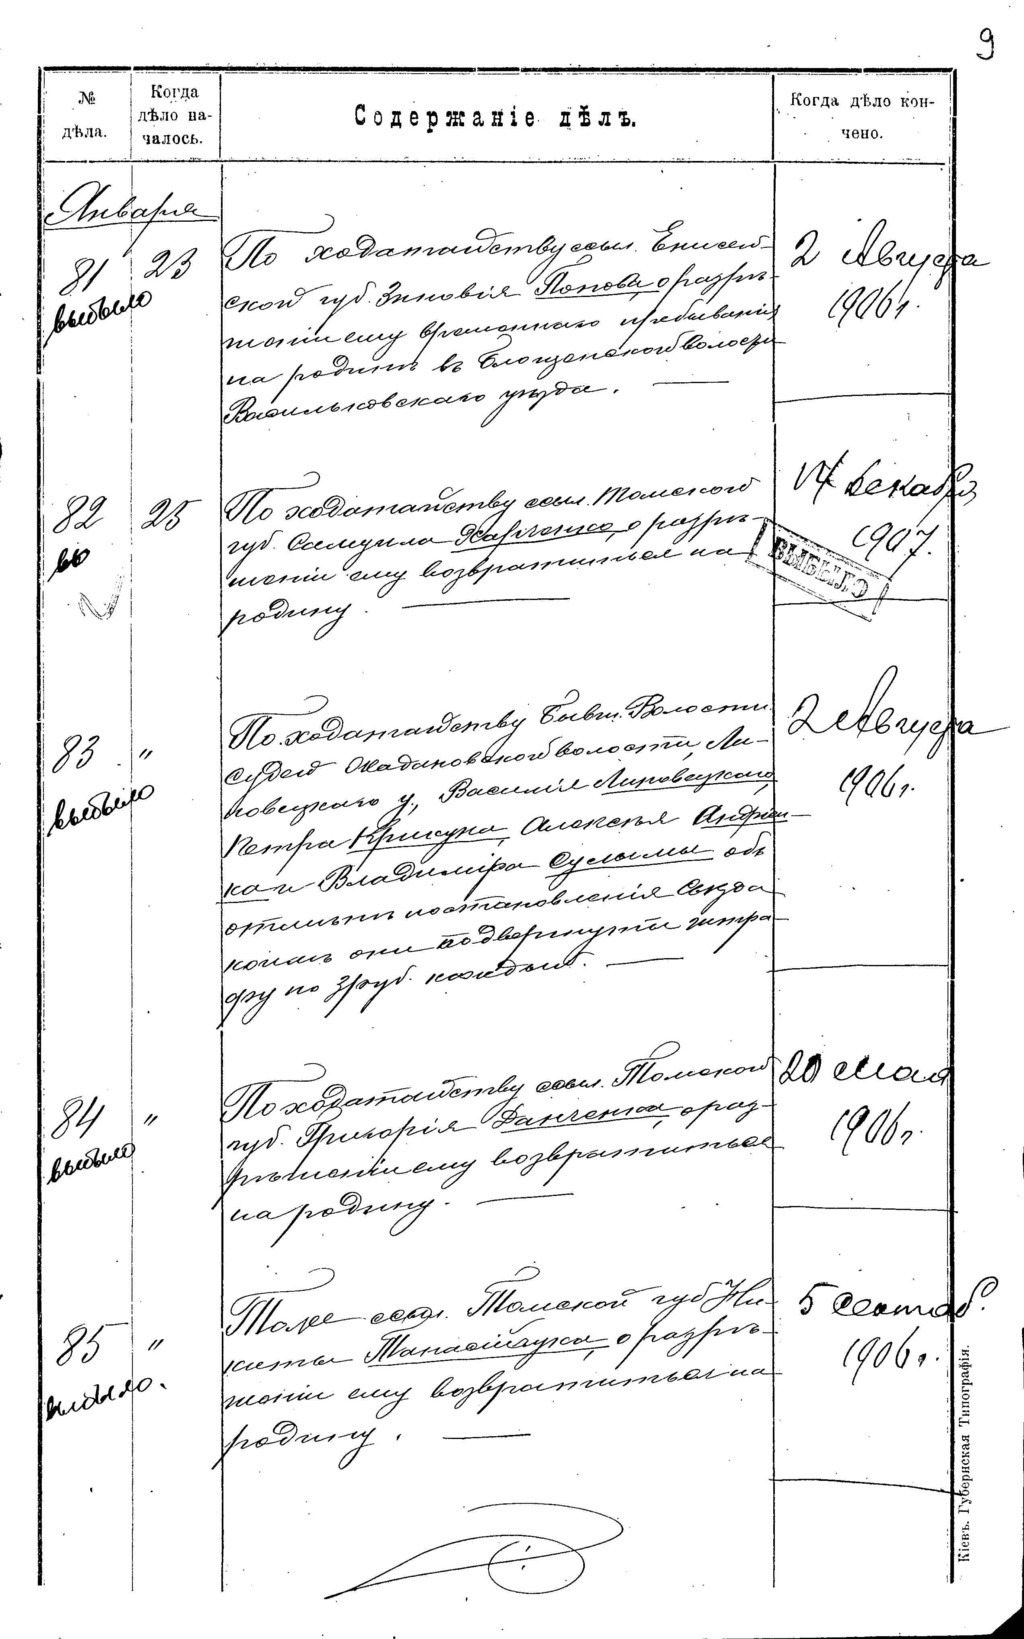 9
№
дѣла.
Когда
дѣло на-
чалось.
Содержаніе дѣлъ.
Когда дѣло кон-
чено.
Января
81
выбыло
23
По ходатайству ссыл. Енисей-
ской губ. Зиновія Попова, о разрѣ-
шеніи ему временнаго пребыванія
на родинѣ въ волости
Васильковскаго уѣзда.
2 Августа
1906 г.
82
вы
25
По ходатайству ссыл. Томской
губ. Самуила Харченко, о разрѣ-
шеніи ему возвратиться на
родину.
17 Декабря
1907.
ВЫБЫЛО
83
выбыло
"
По ходатайству бывш. Волостн.
судей волости, Ли-
повецкаго у., Василія Липовецкаго,
Петра Крисуна, Алексѣя Андрей-
ка и Владиміра Сулимы объ
отмѣнѣ постановленія Съѣзда
коимъ они подвергнуты штра-
фу по 3 руб. каждый.
2 Августа
1906 г.
84
выбыло
"
По ходатайству ссыл. Томской
губ. Григорія Данченка, о раз-
рѣшеніи ему возвратиться
на родину.
20 Мая
1906 г.
85
выбыло.
"
Тоже ссыл. Томской губ. Ни-
киты Танасійчука, о разрѣ-
шеніи ему возвратиться на
родину.
5 Сентяб.
1906 г.
Кіевъ. Губернская Типографія.